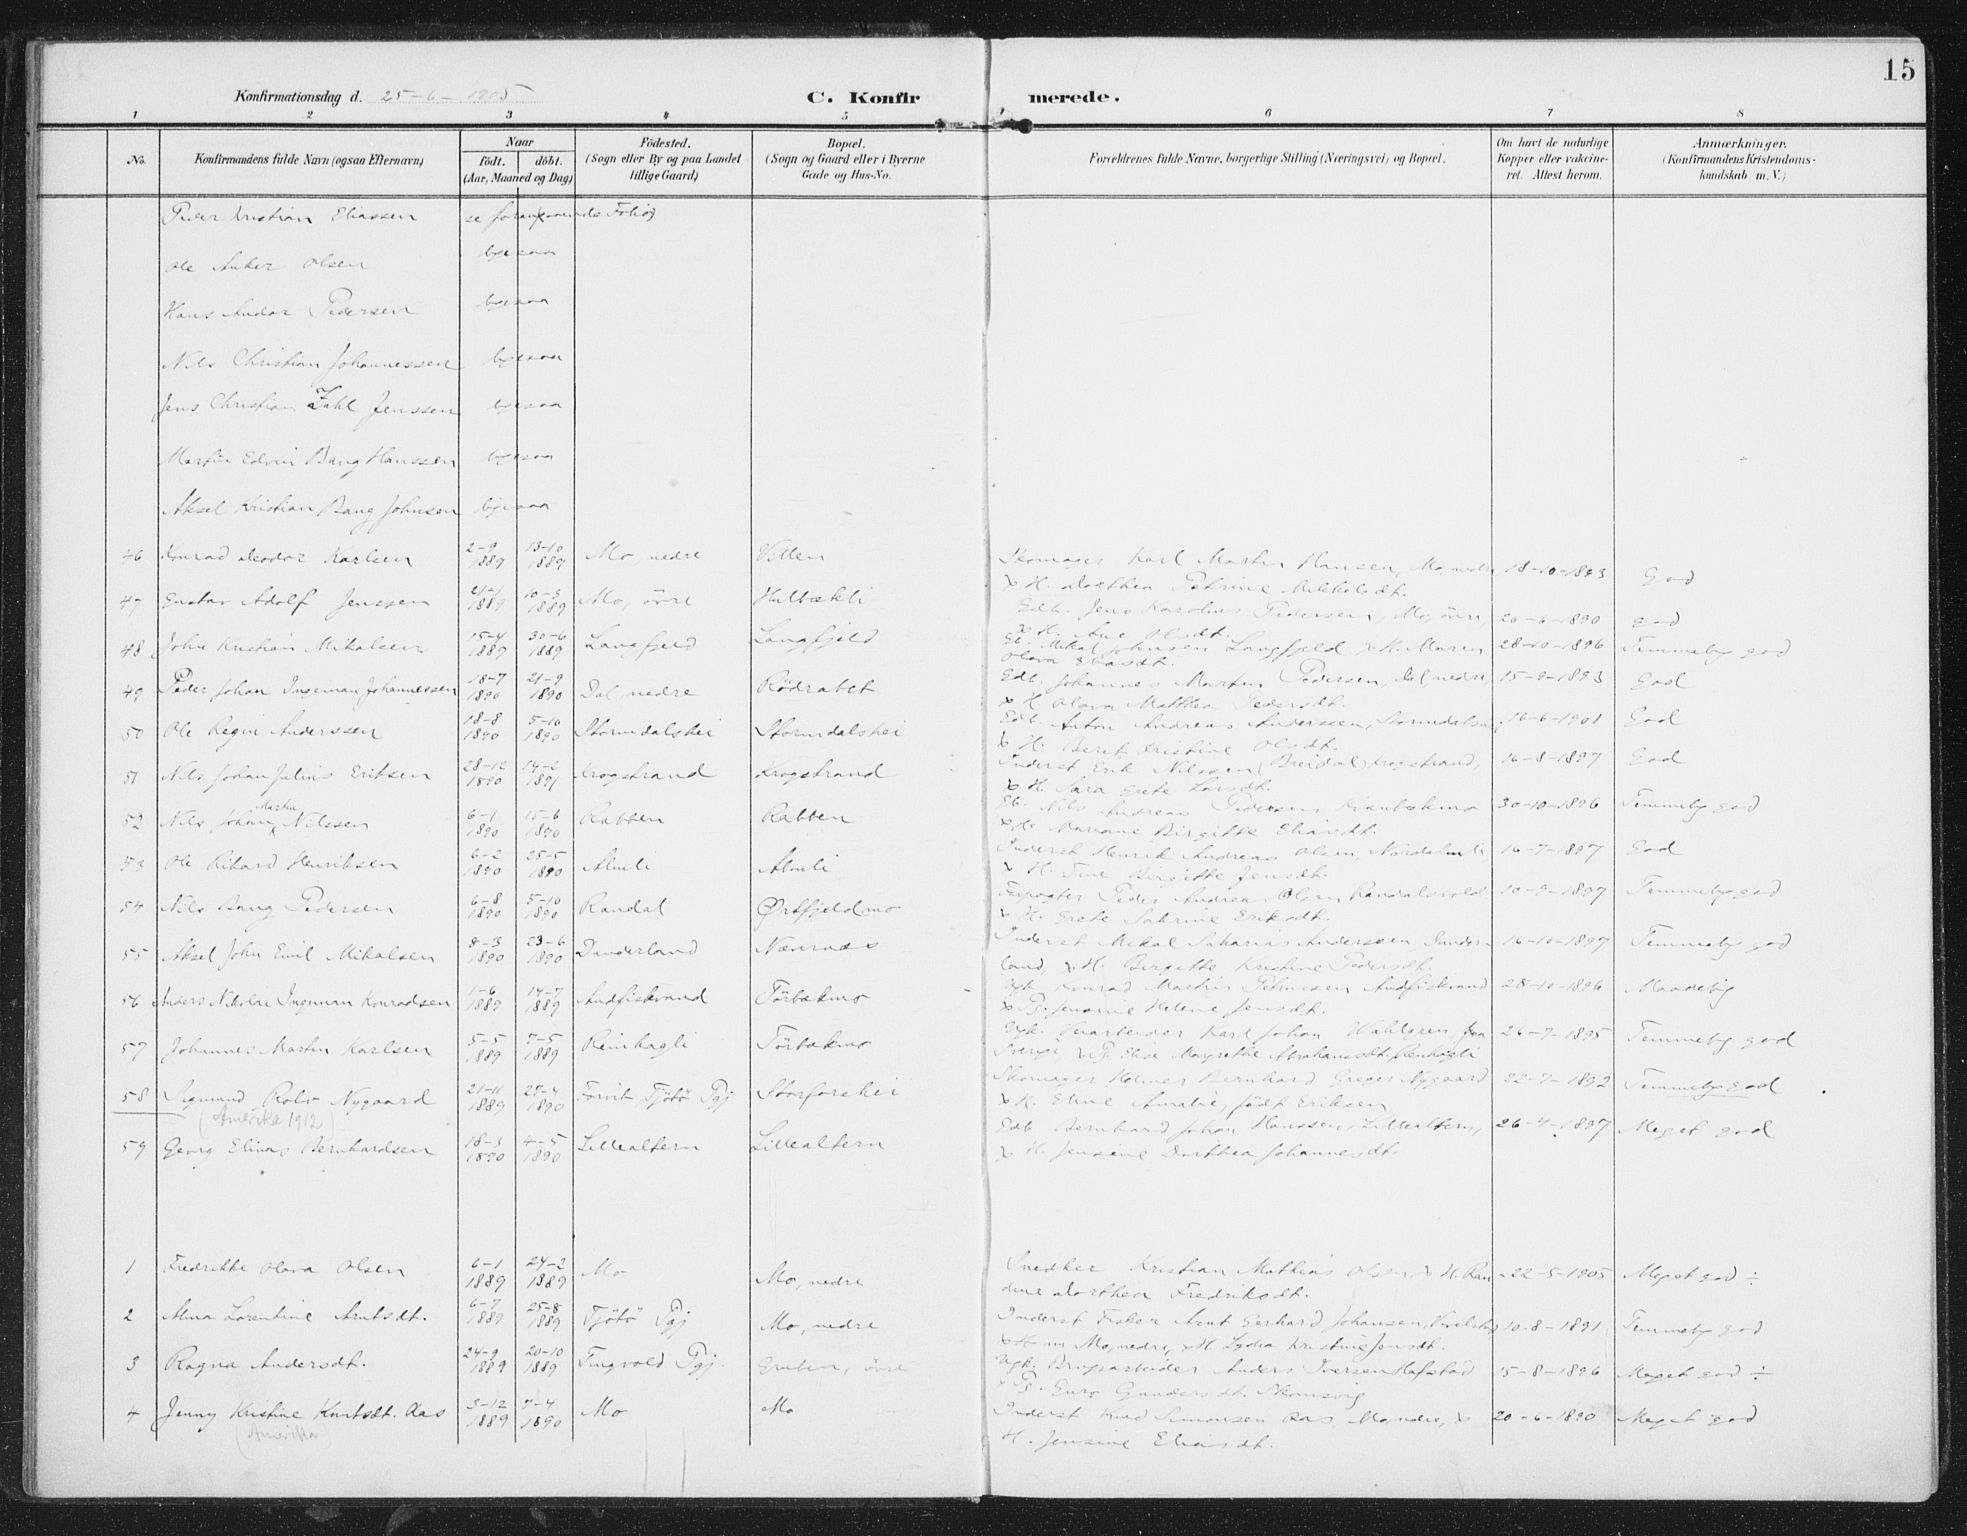 15
Konfirmationsdag d. 25-6-1905
C. Konfirmerede.
1 2 3 4 5 6 7 8
No.
Konfirmandens fulde Navn (ogsaa Efternavn)
Naar
födt. döbt.
(Aar, Maaned og Dag)
Födested.
(Sogn eller By og paa Landet
tillige Gaard)
Bopæl.
(Sogn og Gaard eller i Byerne
Gade og Hus-No.
Forældrenes fulde Navne, borgerlige Stilling (Næringsvei) og Bopæl.
Om havt de naturlige
Kopper eller vakcine-
ret. Attest herom.
Anmærkninger.
(Konfirmandens Kristendoms-
kundskab m. V.)
Peder Kristian Eliassen se foregaaende Folio
Ole Anker Olsen ligesaa
Hans Andor Pedersen ligesaa
Nils Christian Johannessen ligesaa
Jens Christian Zahl Jenssen ligesaa
Martin Edvin Bang Hanssen ligesaa
Aksel Kristian Bang Johnsen ligesaa
46 Konrad Teodor Karlsen 2-9 1889 13-10 1889 Mo, nedre Vellen Skomager Karl Martin Hansen, Mo, nedre 18-10-1893 God
x H. Dorthea Petrine Mikkelsdt.
47 Gustav Adolf Jenssen 21-1 1889 10-3 1889 Mo, övre Hulbækli Gdb. Jens Karolius Pedersen, Mo, övre, 20-6-1890 god
x H. Ane Olsdt.
48 John Kristian Mikalsen 15-4 1889 30-6 1889 Langfjeld Langfjeld Gb. Mikal Johnsen Langfjeld x H. Maren 28-10-1896 Temmelig god
Olava Eliasdt.
49 Peder Johan Ingeman Johannessen 18-7 1890 21-9 1890 Dal, nedre Rödrabet Gdb. Johannes Martin Pedersen, Dal, nedre, 15-9-1893 God
x H Olava Matthea Pedersdt.
50 Ole Regin Anderssen 18-8 1890 5-10 1890 Stormdalshei Stormdalshei Gdb. Anton Andreas Anderssen, Stormdalshei, 16-6-1901 God
x H. Beret Kristine Olsdt.
51 Nils Johan Julius Eriksen 28-12 1890 14-2 1891 Krogstrand Krogstrand Inderst Erik Nilssen (Breidal) Krogstrand, 16-8-1897 God
x H. Sara Grete Larsdt.
52 Nils Johan Martin Nilssen 6-1 1890 15-6 1890 Rabben Rabben Gb. Nils Andreas Pedersen 30-10-1896 Temmelig god
x H. Mariane Birgitte Eliasdt.
53 Ole Rikard Henriksen 6-2 1890 25-5 1890 Almli Almli Inderst Henrik Andreas Olsen, Nordalmli 16-7-1897 God
x H. Tine Birgitte Jensdt.
54 Nils Bang Pedersen 6-8 1890 5-10 1890 Randal Ørtfjeldmo Forpagter Peder Andreas Olsen Randalsvold 10-9-1897 Temmelig god
x H. Grete Sabrine Eriksdt.
55 Aksel John Emil Mikalsen 8-3 1890 23-6 1890 Dunderland Nævernæs Inderst Mikal Sakarias Anderssen Dunder- 16-10-1897 Temmelig god
land, x H. Birgitte Kristine Pedersdt.
56 Anders Nikolai Ingeman Konradsen 1-6 1889 14-7 1889 Andfiskvand Törbækmo Ugk. Konrad Martin Petrussen Andfiskvand 28-10-1896 Maadelig
x Pg. Jensine Helene Jensdt.
57 Johannes Martin Karlsen 5-5 1889 7-5 1889 Reinhagli Törbækmo Ugk. Karl Johan Wahlgren fra 26-7-1895 Temmelig god
Sverige x Pg. Elise Margrethe Abrahamsdt. Reinhagli
58 Sigmund Rolv Nygaard 21-11 1889 25-4 1890 Forvik Tjötö Pgj Storforshei Skomager Holmer Bernhard Greger Nygaard 22-7-1892 Temmelig god
(Amerika 1912)
x H. Eline Amalie, födt Eriksen
59 Georg Elinas Bernhardsen 18-3 1890 4-5 1890 Lillealteren Lillealteren Gdb Bernhard Johan Hanssen, Lillealteren, 26-4-1897 Meget god
x H. Jensine Dorthea Johannesdt.
1 Fredrikke Olava Olsen 6-1 1889 24-2 1889 Mo Mo, nedre Snedker Kristian Mathias Olsen, x H. Ran- 22-5-1905 Meget god ÷
dine Dorthea Fredriksdt.
2 Alma Lorentine Arntsdt. 6-7 1889 25-8 1889 Tjötö Pgj Mo, nedre Inderst Fisker Arnt Gerhard Johansen, 10-8-1891 Temmelig god
nu Mo, nedre, x H. Lydia Kristine Jensdt.
3 Ragna Andersdt. 24-9 1889 20-10 1889 Tingvold Pgj. Gruben, övre Ugk. Brugsarbeider Anders Iversen Hafstad 15-8-1896 Meget god ÷
x Pg. Guro Gundersdt. Skomsvig
4 Jenny Kristine Knutsdt. Aas 3-12 1889 7-4 1890 Mo Mo Inderst Knud Simonsen Aas, Mo, nedre, x 20-6-1890 Meget god
(Amerika)
H. Jensine Eliasdt.